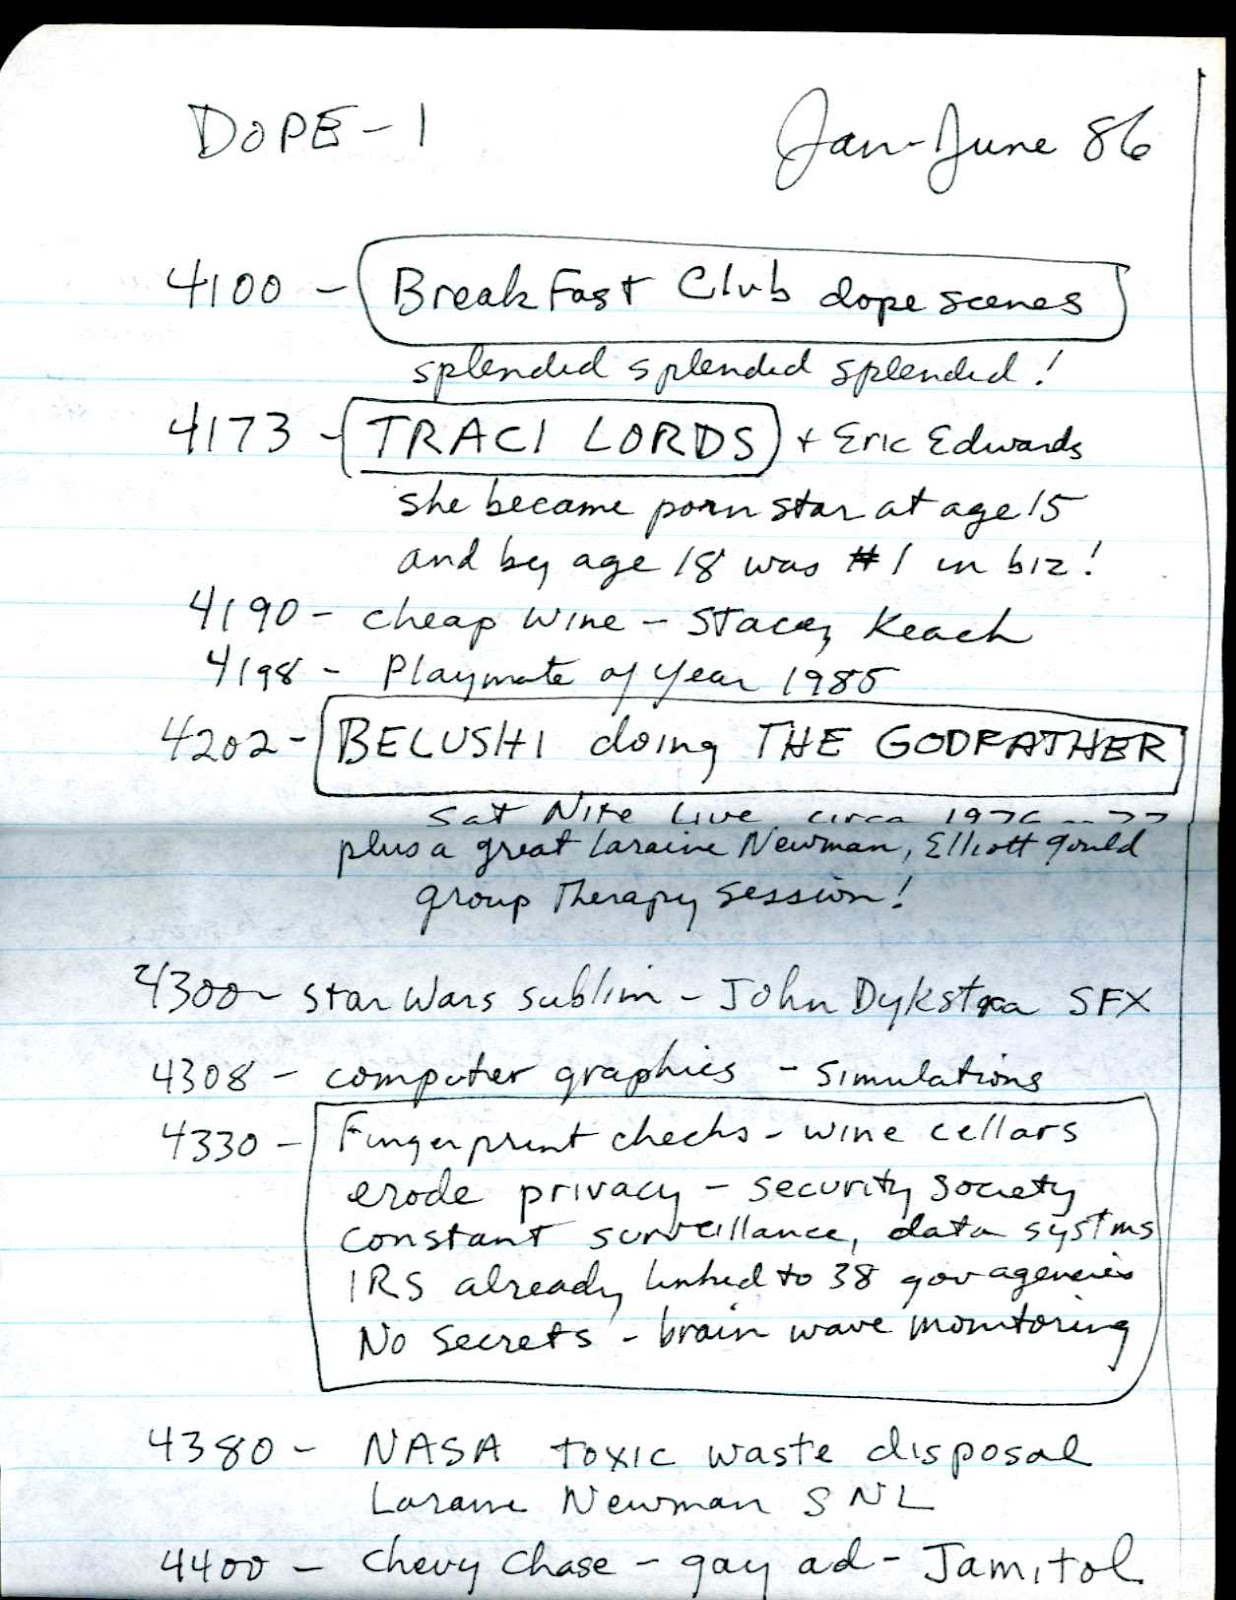 DOPE - 1 Jan-June 86
4100 - BreakFast Club dope scenes
splended splended splended!
4173 - TRACI LORDS + Eric Edwards
she became porn star at age 15
and by age 18 was #1 in biz!
4190 - cheap wine - Stacey Keach
4198 - Playmate of Year 1985
4202 - BELUSHI doing THE GODFATHER
Sat Nite Live circa 1976 - 77
plus a great Laraine Newman, Elliott Gould
group Therapy Session!
4300 - Star Wars sublim - John Dykstra SFX
4308 - computer graphics - simulations
4330 - Fingerprint checks - wine cellars
erode privacy - security society
constant surveillance, data systms
IRS already linked to 38 gov agencies
No Secrets - brain wave monitoring
4380 - NASA toxic waste disposal
Laraine Newman SNL
4400 - Chevy Chase - gay ad - Jamitol